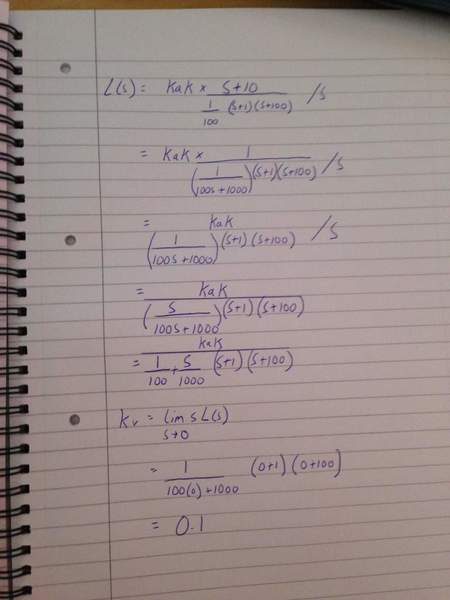 L(s) = KaK × (s+10) / (1/100 (s+1)(s+100)) /s
= KaK × 1 / ((1/(100s+1000))(s+1)(s+100)) /s
= KaK / ((1/(100s+1000))(s+1)(s+100)) /s
= KaK / ((s/(100s+1000))(s+1)(s+100))
= KaK / (1/100 + s/1000 (s+1)(s+100))
Kv = lim s→0 s L(s)
= 1/(100(0)+1000) (0+1)(0+100)
= 0.1